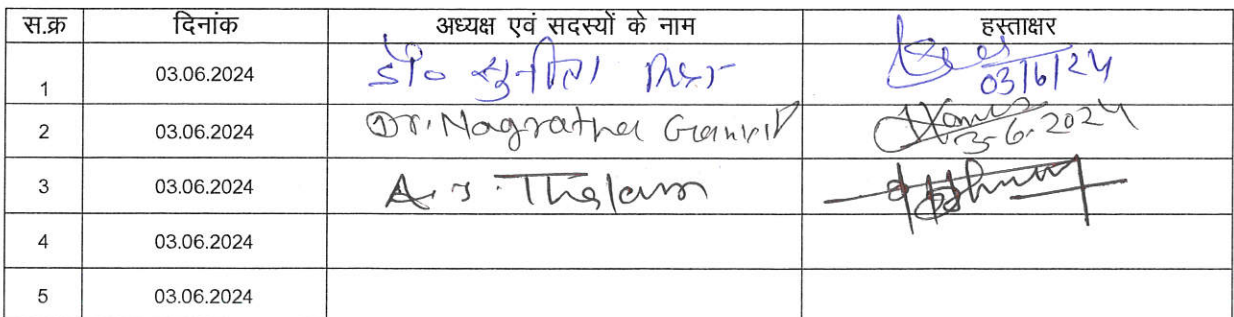 स.क्र दिनांक अध्यक्ष एवं सदस्यों के नाम हस्ताक्षर
1 03.06.2024 डॉ० सुनीता 03/6/24
2 03.06.2024 Dr. Nagratna Ganvir 3-6-2024
3 03.06.2024 A. S.
4 03.06.2024
5 03.06.2024